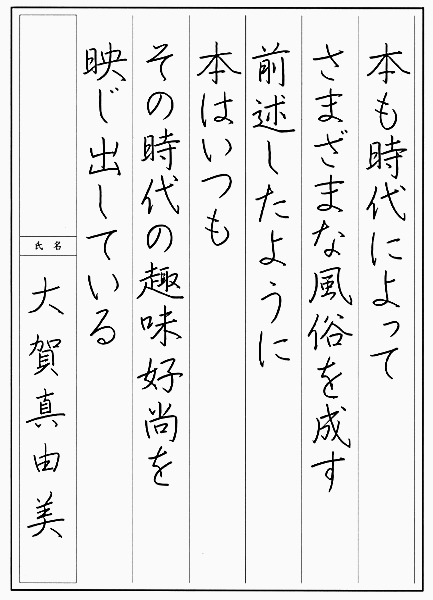 本も時代によって
さまざまな風俗を成す
前述したように
本はいつも
その時代の趣味好尚を
映じ出している
氏名
大賀真由美